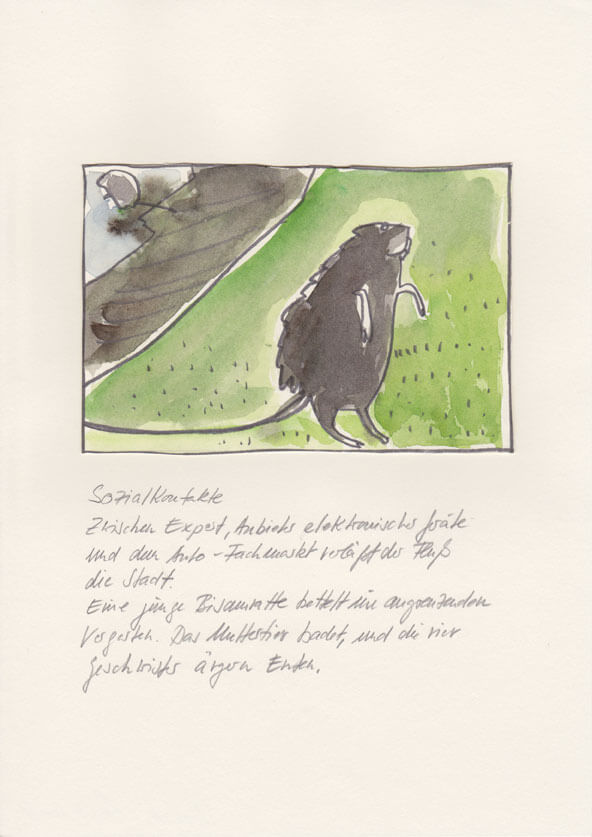 Sozialkontakte
Zwischen Expert, Anbieter elektronischer Geräte
und dem Auto-Fachmarkt verläßt der Fluß
die Stadt.
Eine junge Bisamratte bettelt im angrenzenden
Vorgarten. Das Muttertier badet, und die vier
Geschwister ärgern Enten.